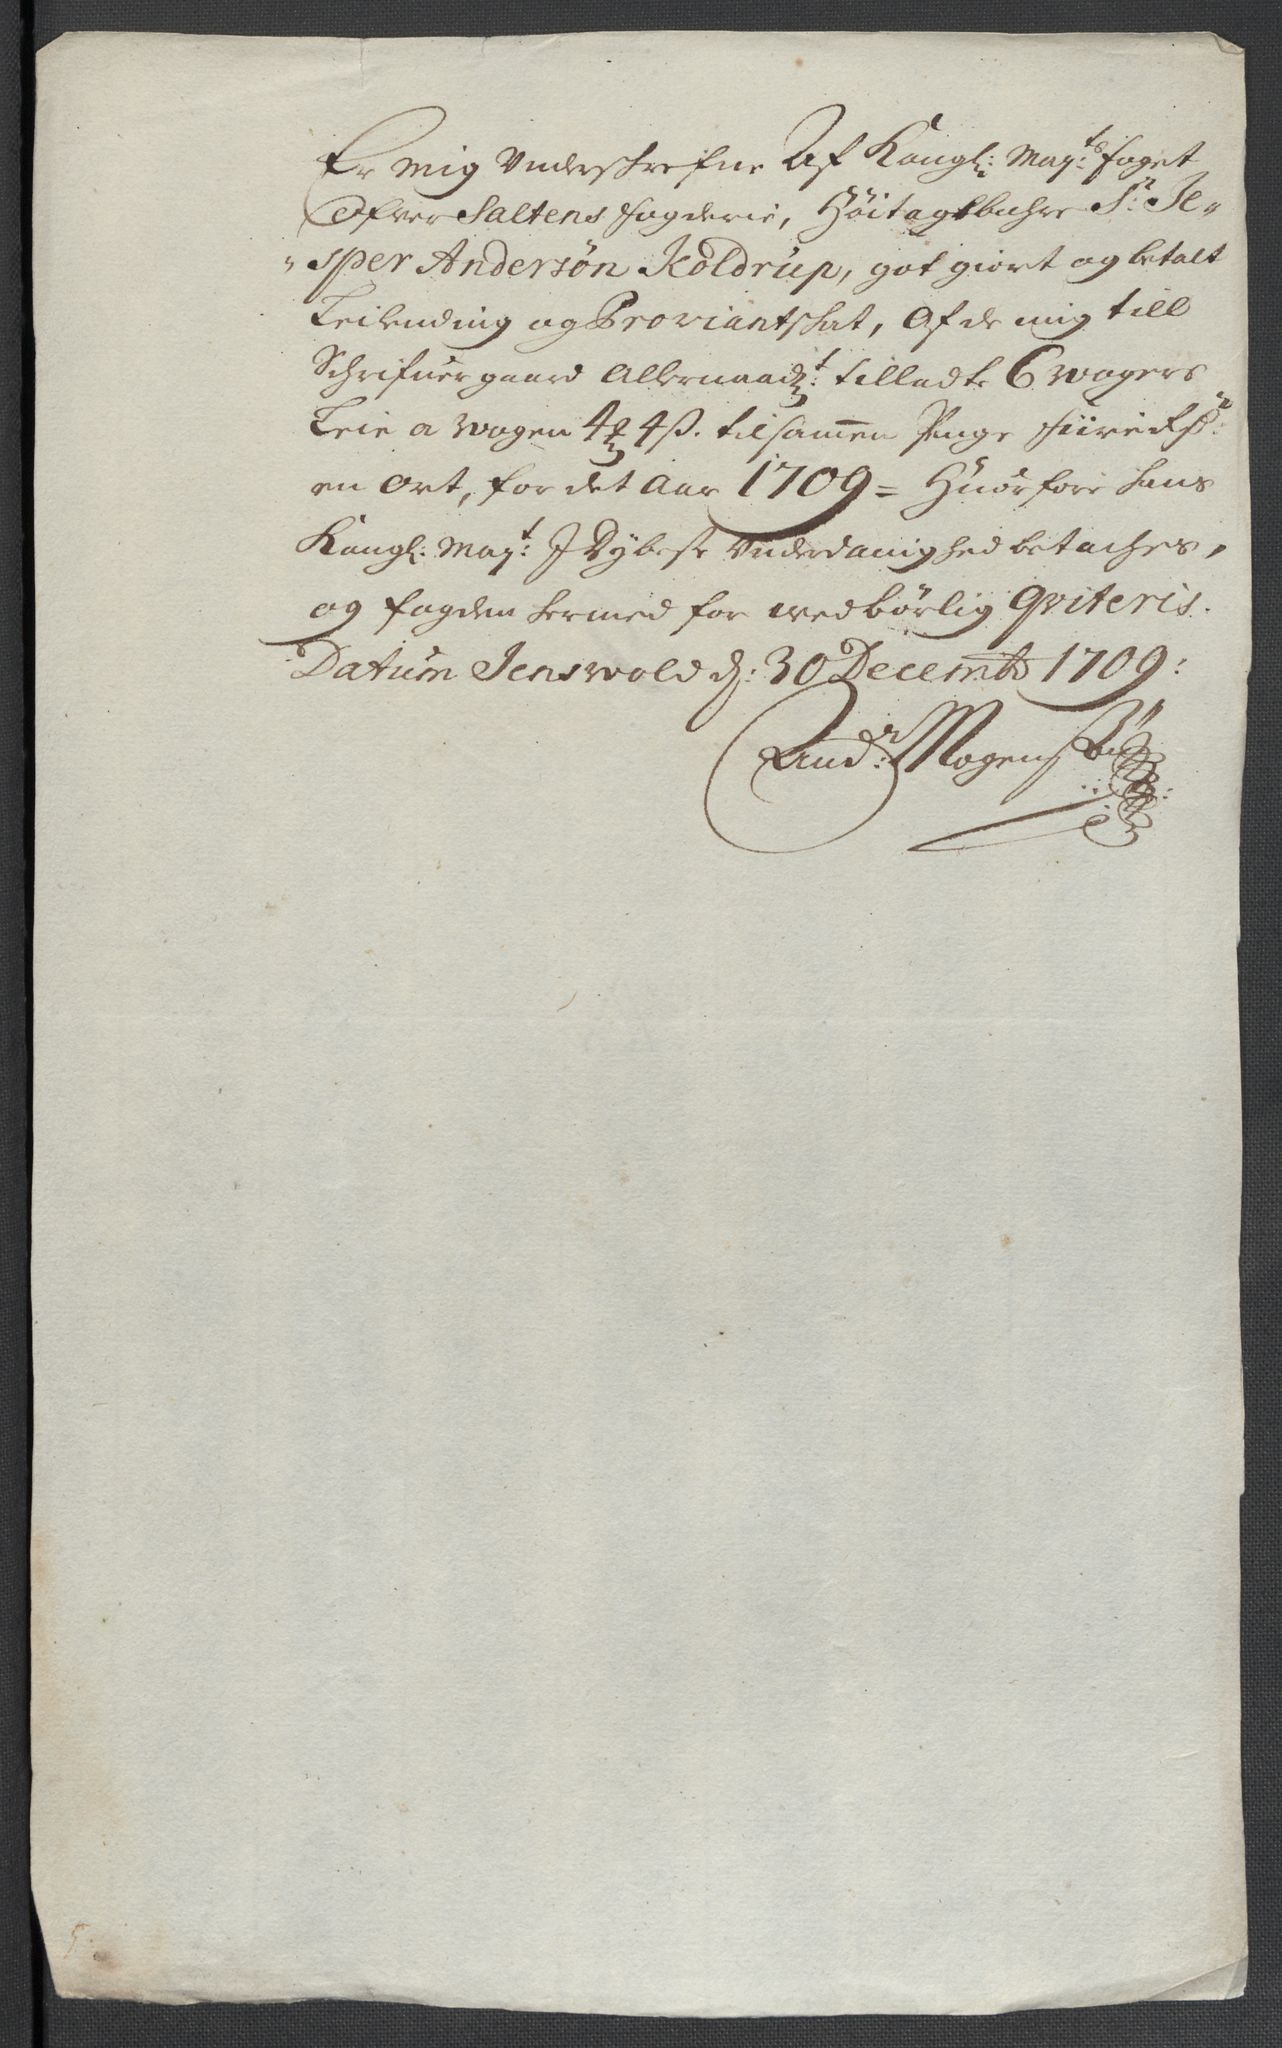 Er mig Underschrefne Af Kongl: May:ts foget
Ofver Saltens fogderie, Höitagtbahre Sr: Je„
„sper Andersøn Koldrup, got giort og betalt
Leilending og Proviantschat, Af de mig till
Schrifuergaard Allernaadt: tilladte 6 wogers
Leie a wogen 4 4 ß. tilsamen Penge
en ort, for det Aar 1709 = Huorfore hans
Kongl: May:t J Dybeste Underdanighed betaches,
og fogden hermed for wedbörlig Qviteris.
Datum Jenswold d: 30 Decembr 1709:
And:r Mogens